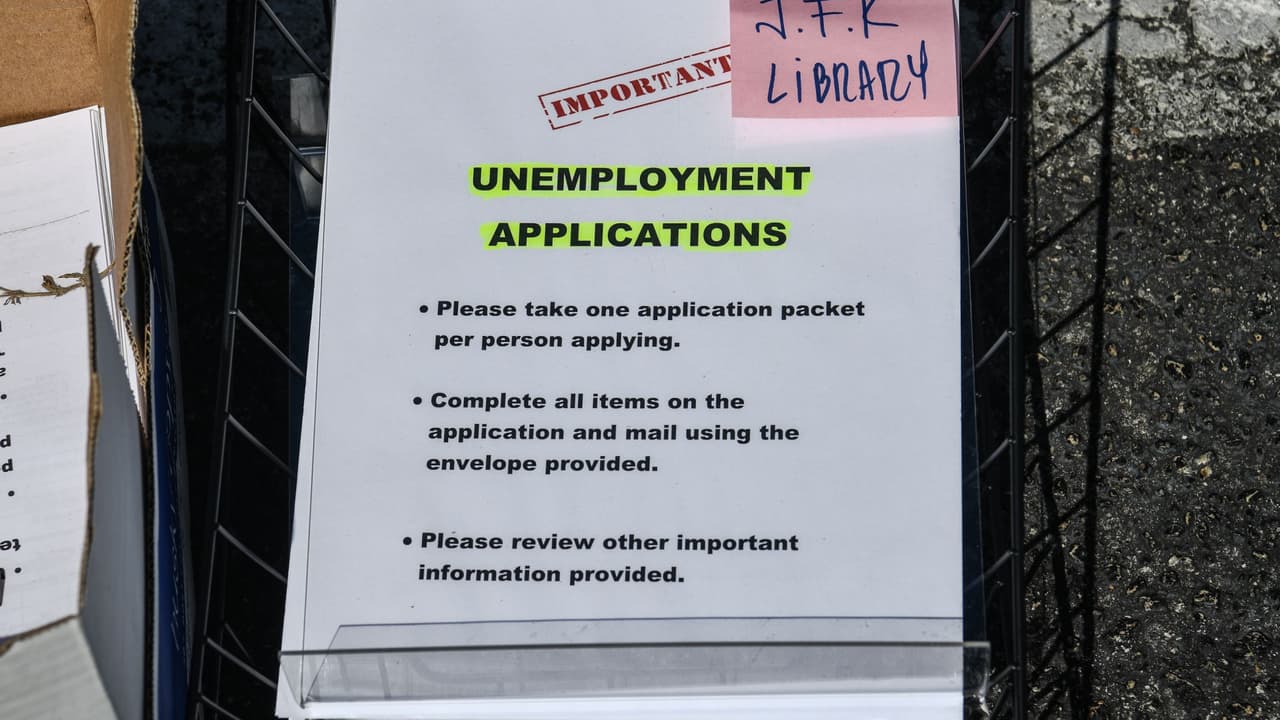 J.F.K
LIBRARY
IMPORTANT
UNEMPLOYMENT
APPLICATIONS
• Please take one application packet
per person applying.
• Complete all items on the
application and mail using the
envelope provided.
• Please review other important
information provided.